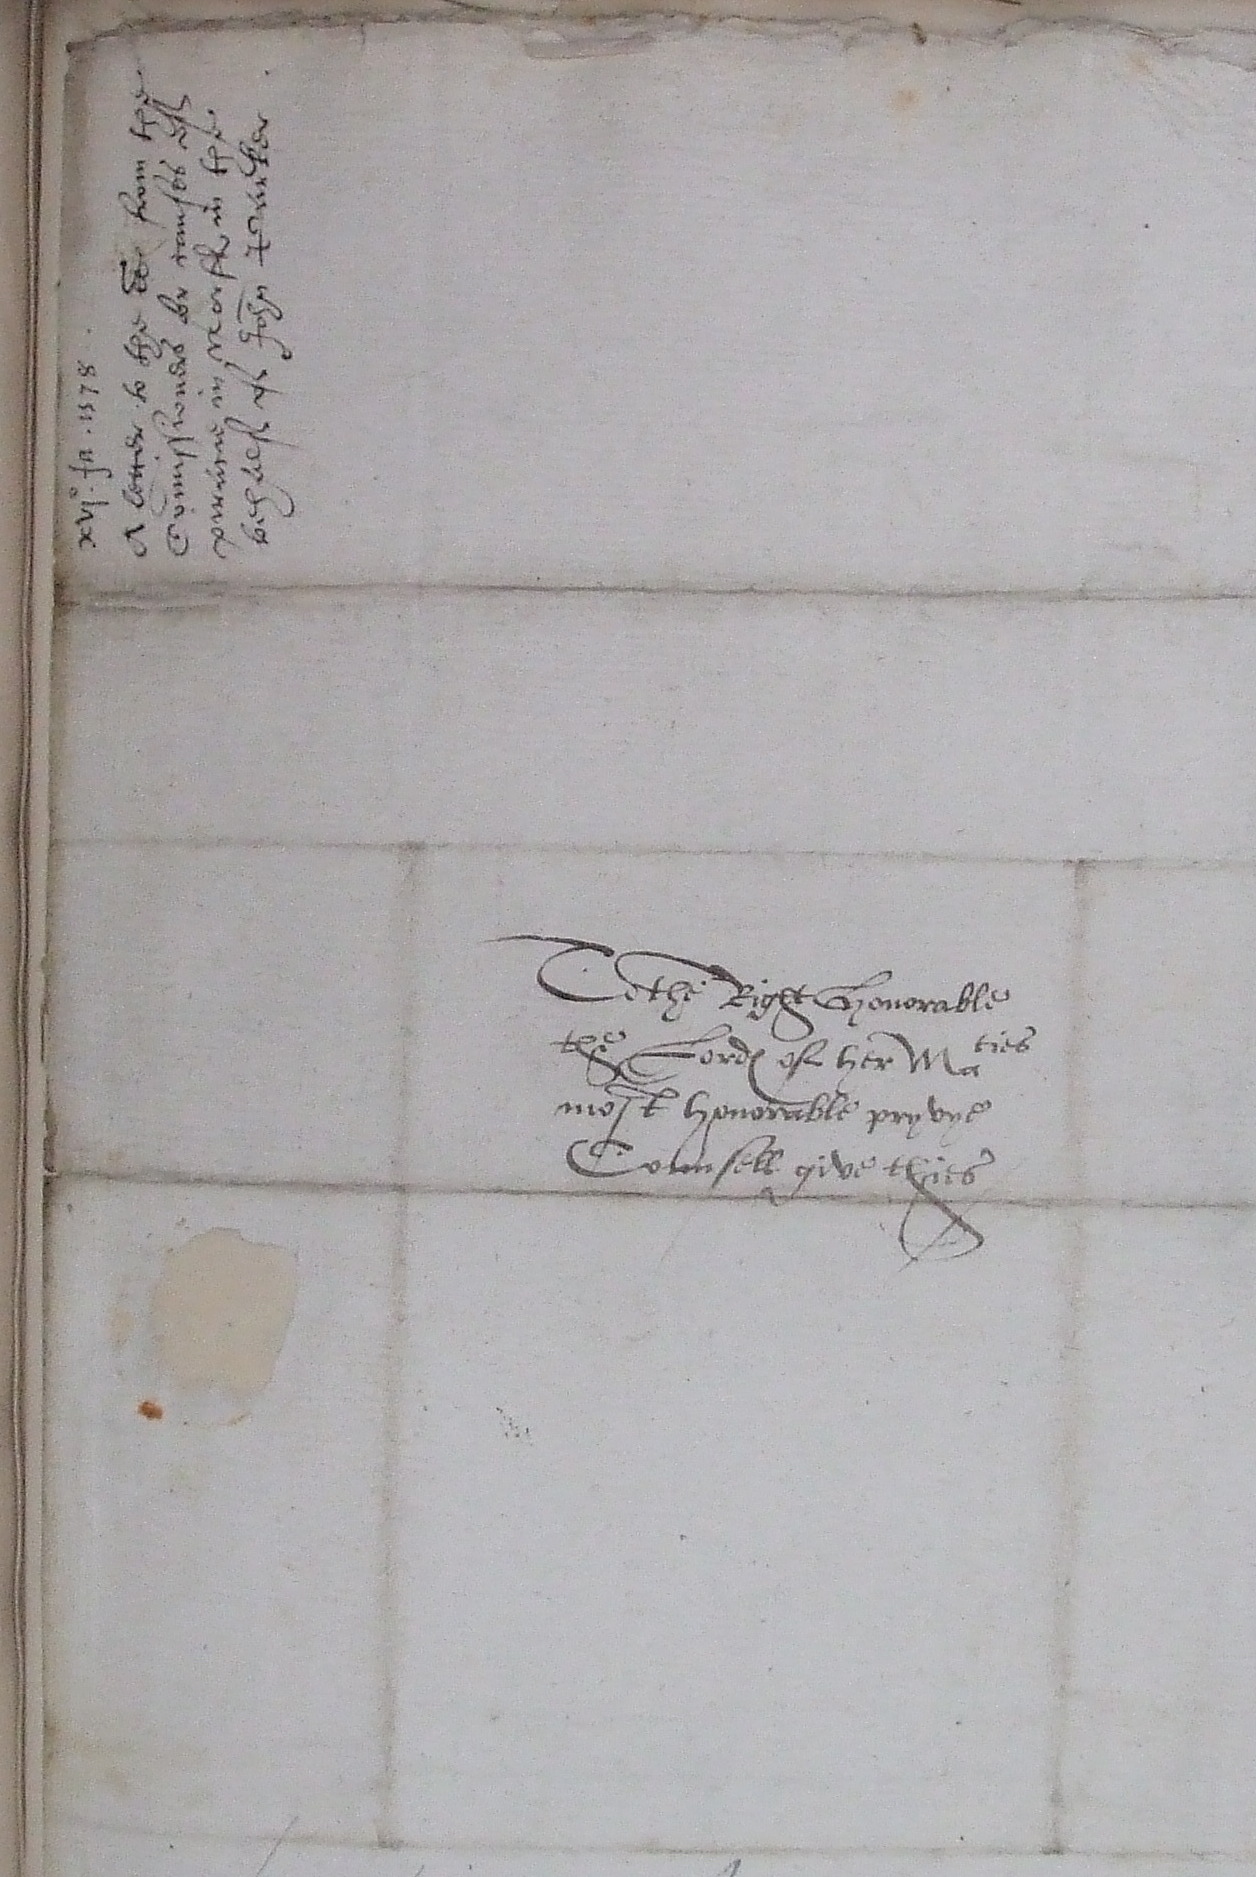 xvjo. Ja. 1578.
A letter to the LL from the
Comissioners for causes of
pyracie in Norff in the
behalf of John
To the Right Honorable
the Lord of her Maties
most honorable pryvye
Counsell give thies